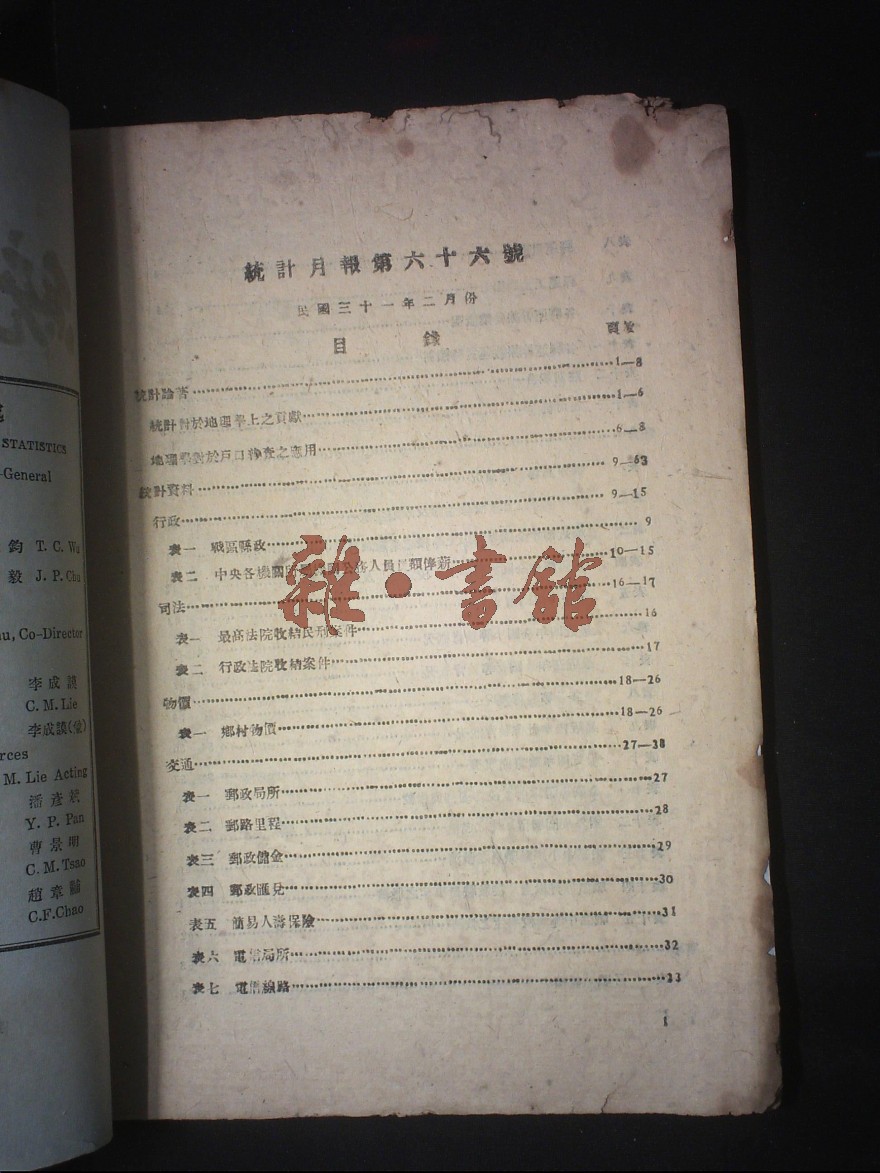 STATISTICS
-General
鈞 T. C. Wu
毅 J. P. Chu
au, Co-Director
李成謨
C. M. Lie
李成謨(兼)
rces
M. Lie Acting
潘彥斌
Y. P. Pan
曹景明
C. M. Tsao
趙章黼
C.F.Chao
統計月報第六十六號
民國三十一年二月份
目 錄
頁次
統計論著 1—8
統計對於地理學上之貢獻 1—6
地理學對於戶口普查之應用 6—8
統計資料 9—63
行政 9—15
表一 戰區縣政 9
表二 中央各機關所 人員 額俸薪 10—15
司法 16—17
表一 最高法院收結民刑案件 16
表二 行政法院收結案件 17
物價 18—26
表一 鄉村物價 18—26
交通 27—38
表一 郵政局所 27
表二 郵路里程 28
表三 郵政儲金 29
表四 郵政匯兌 30
表五 簡易人壽保險 31
表六 電信局所 32
表七 電信線路 33
1
雜·書館